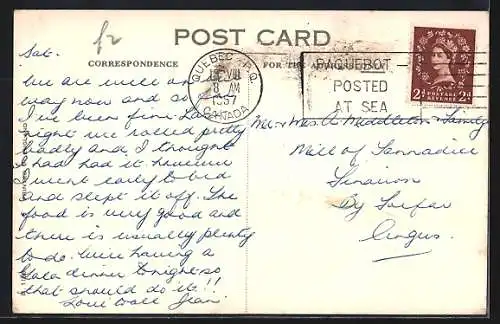 £2
POST CARD
CORRESPONDENCE
FOR THE
QUEBEC P.Q.
VIII
8 AM
1957
CANADA
PAQUEBOT
POSTED
AT SEA
POSTAGE
REVENUE
2d 2d
Sat.
We are well on our
way now and so far
I've been fine. Last
night we rolled pretty
badly and I thought
I had had it. However
I went early to bed
and slept it off. The
food is very good and
there is usually plenty
to do. We're having a
Gala dinner tonight so
that should do it!!
Love to all Jean.
Mr. & Mrs. A. Middleton & Family
Mill of Tannadice
By Forfar
Angus.